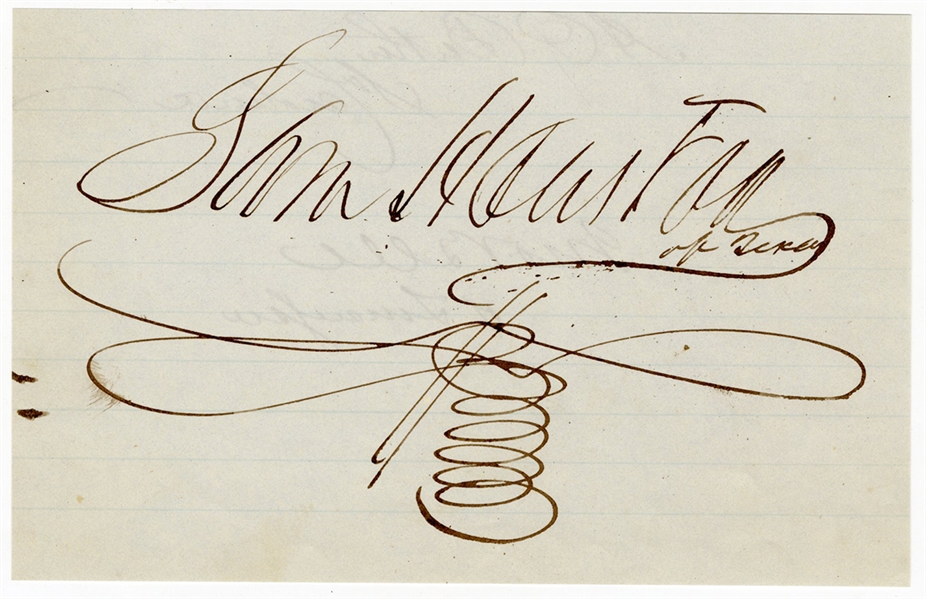 Sam Houston
of Texas